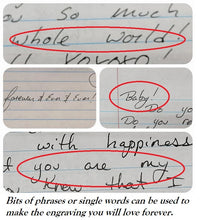 ou so much
whole world!
forever & Ever & Ever!
Baby!
Do yo
Do you n
with happiness
you are my
knew that I
Bits of phrases or single words can be used to
make the engraving you will love forever.